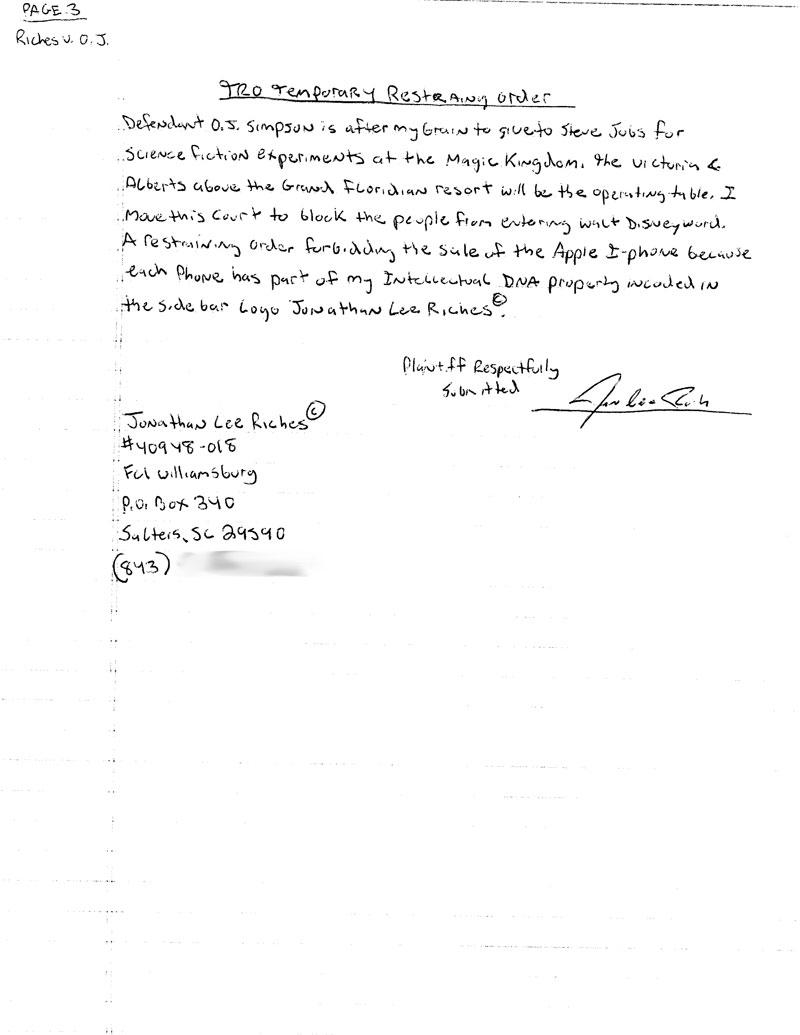 PAGE 3
Riches v. O.J.
TRO Temporary Restraining Order
Defendant O.J. Simpson is after my Brain to give to Steve Jobs for
Science fiction experiments at the Magic Kingdom. The Victoria &
Alberts above the Grand Floridian resort will be the operating table. I
Move this Court to block the people from entering Walt Disneyword.
A restraining order forbidding the sale of the Apple I-phone because
each Phone has part of my Intellectual DNA property incoded in
the side bar Logo Jonathan Lee Riches©.
Plaintiff Respectfully
Submitted
Jonathan Lee Riches©
#40948-018
FCI Williamsburg
P.O. Box 340
Salters, SC 29590
(843)